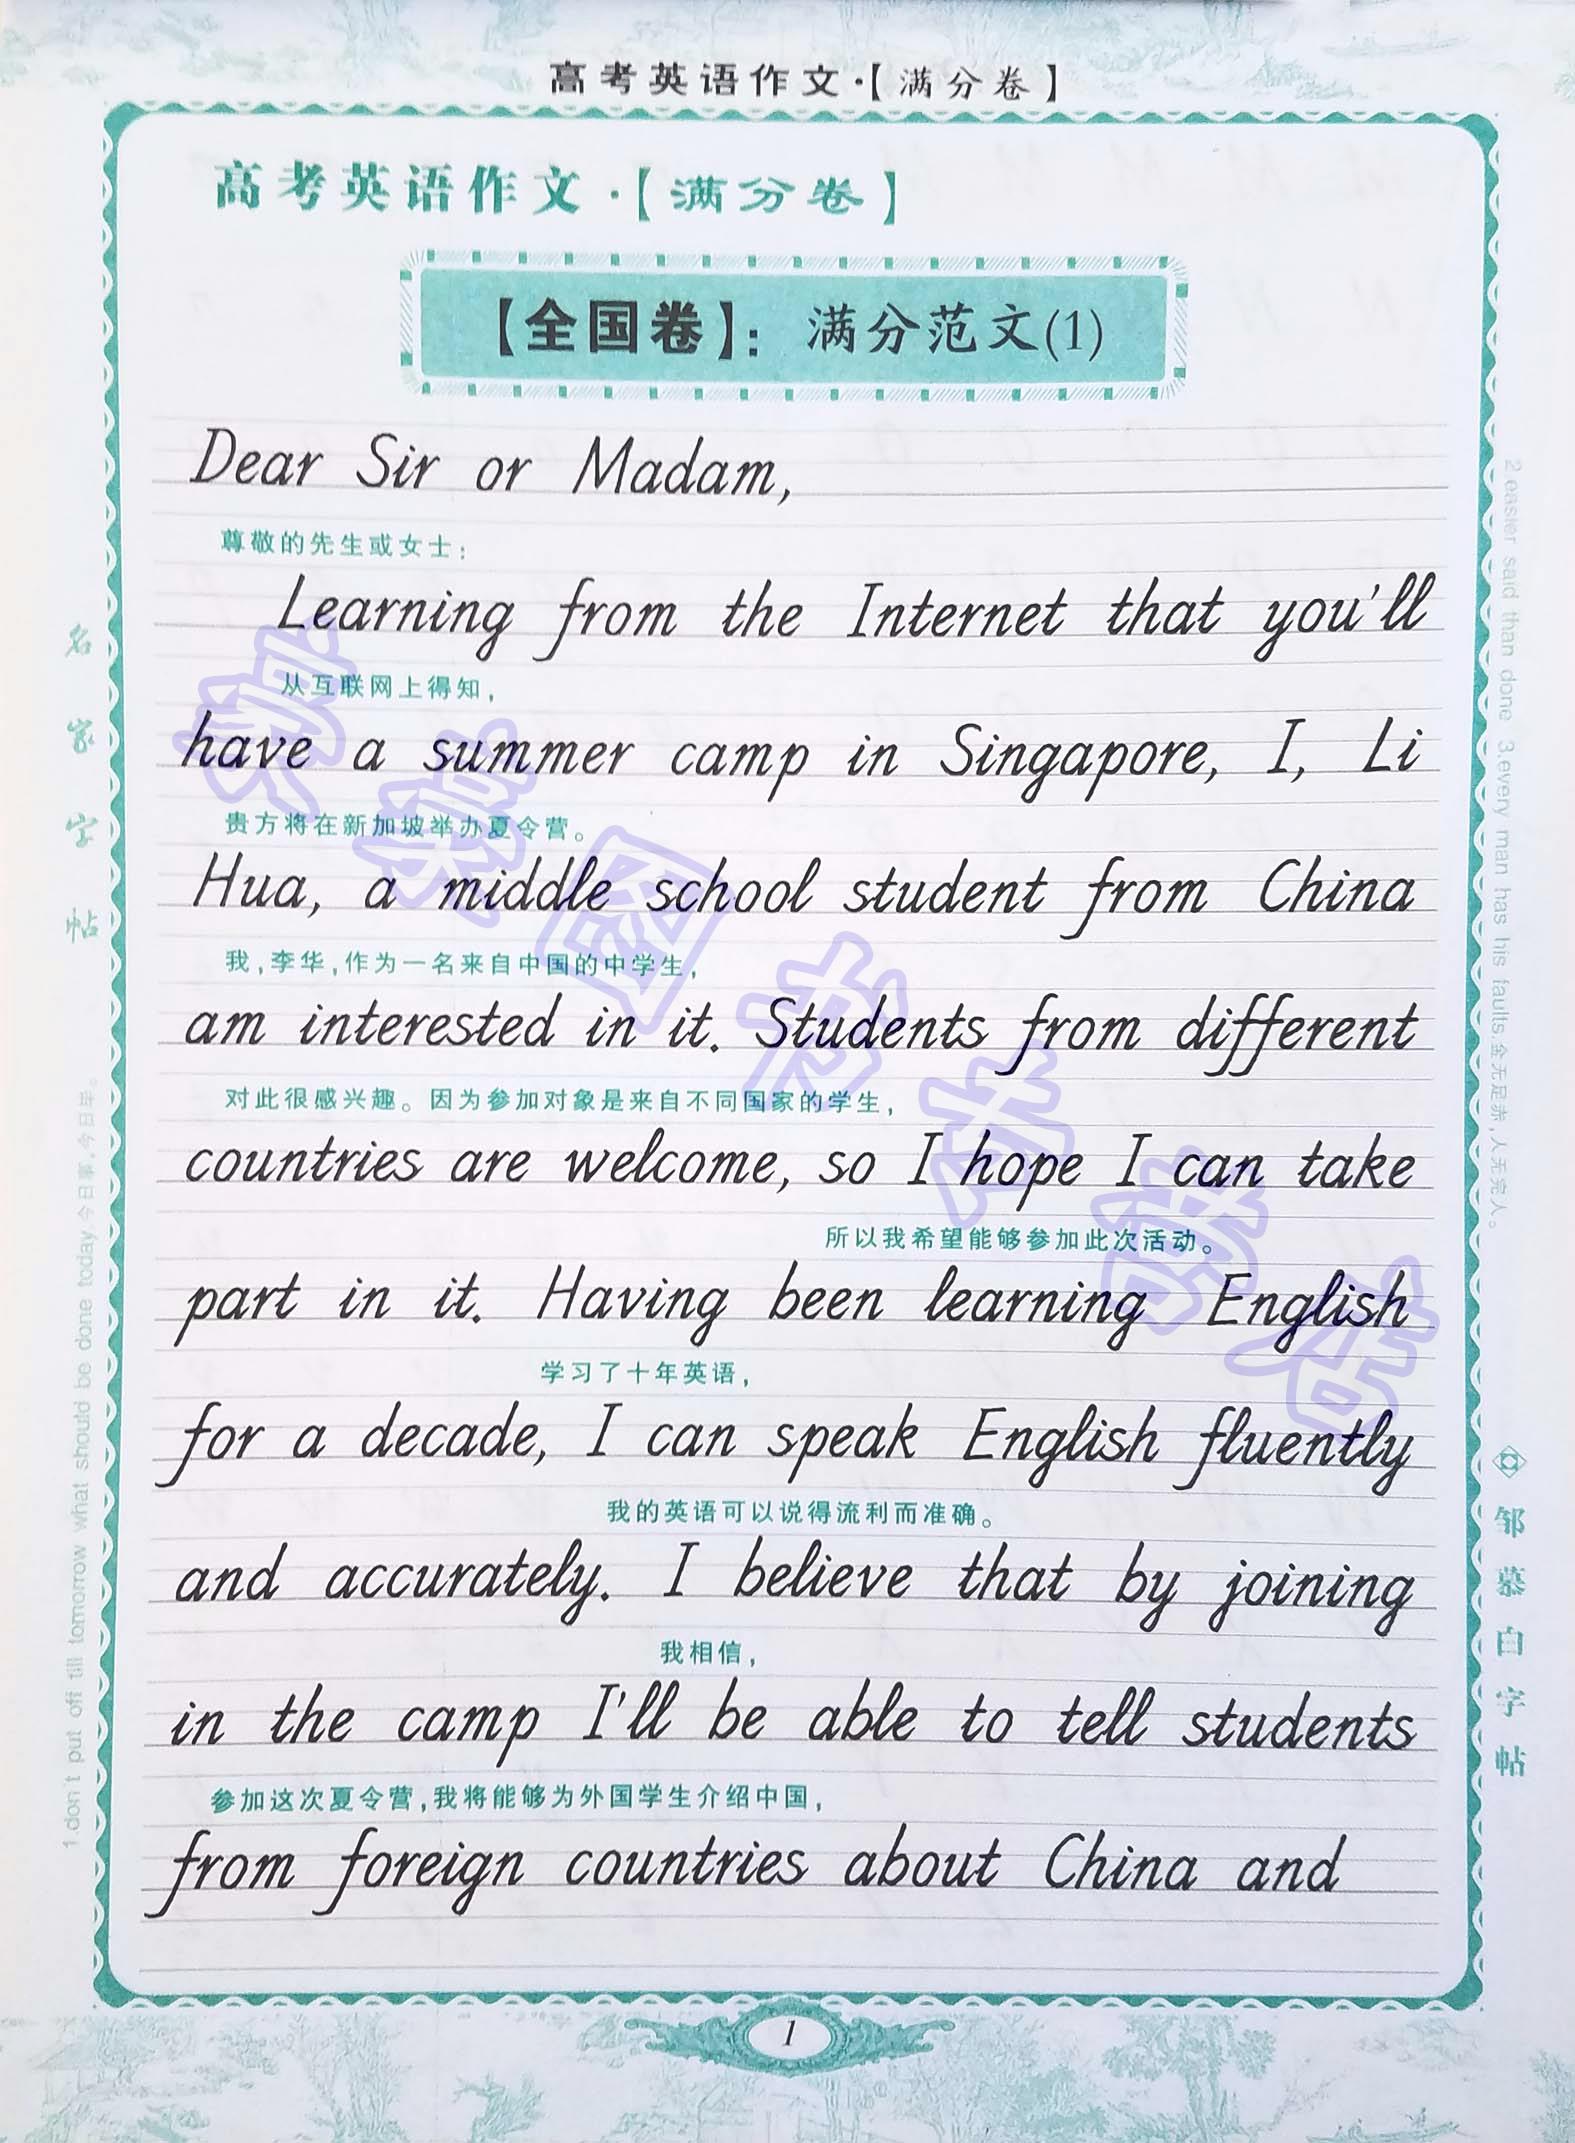 高考英语作文·【满分卷】
高考英语作文·【满分卷】
【全国卷】：满分范文(1)
Dear Sir or Madam,
尊敬的先生或女士：
Learning from the Internet that you'll
从互联网上得知，
have a summer camp in Singapore, I, Li
贵方将在新加坡举办夏令营。
Hua, a middle school student from China
我，李华，作为一名来自中国的中学生，
am interested in it. Students from different
对此很感兴趣。因为参加对象是来自不同国家的学生，
countries are welcome, so I hope I can take
所以我希望能够参加此次活动。
part in it. Having been learning English
学习了十年英语，
for a decade, I can speak English fluently
我的英语可以说得流利而准确。
and accurately. I believe that by joining
我相信，
in the camp I'll be able to tell students
参加这次夏令营，我将能够为外国学生介绍中国，
from foreign countries about China and
1
名家字帖
1.don't put off till tomorrow what should be done today.今日事，今日毕。
2.easier said than done 3.every man has his faults.金无足赤，人无完人。
邹慕白字帖